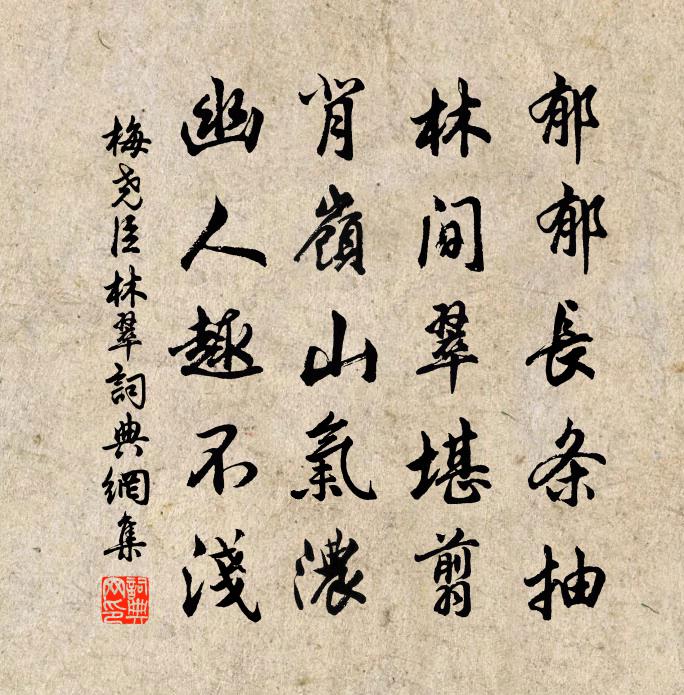 郁郁長条抽
林间翠堪翦
背嶺山氣濃
幽人趣不淺
梅尧臣林翠詞典網集
詞典網印